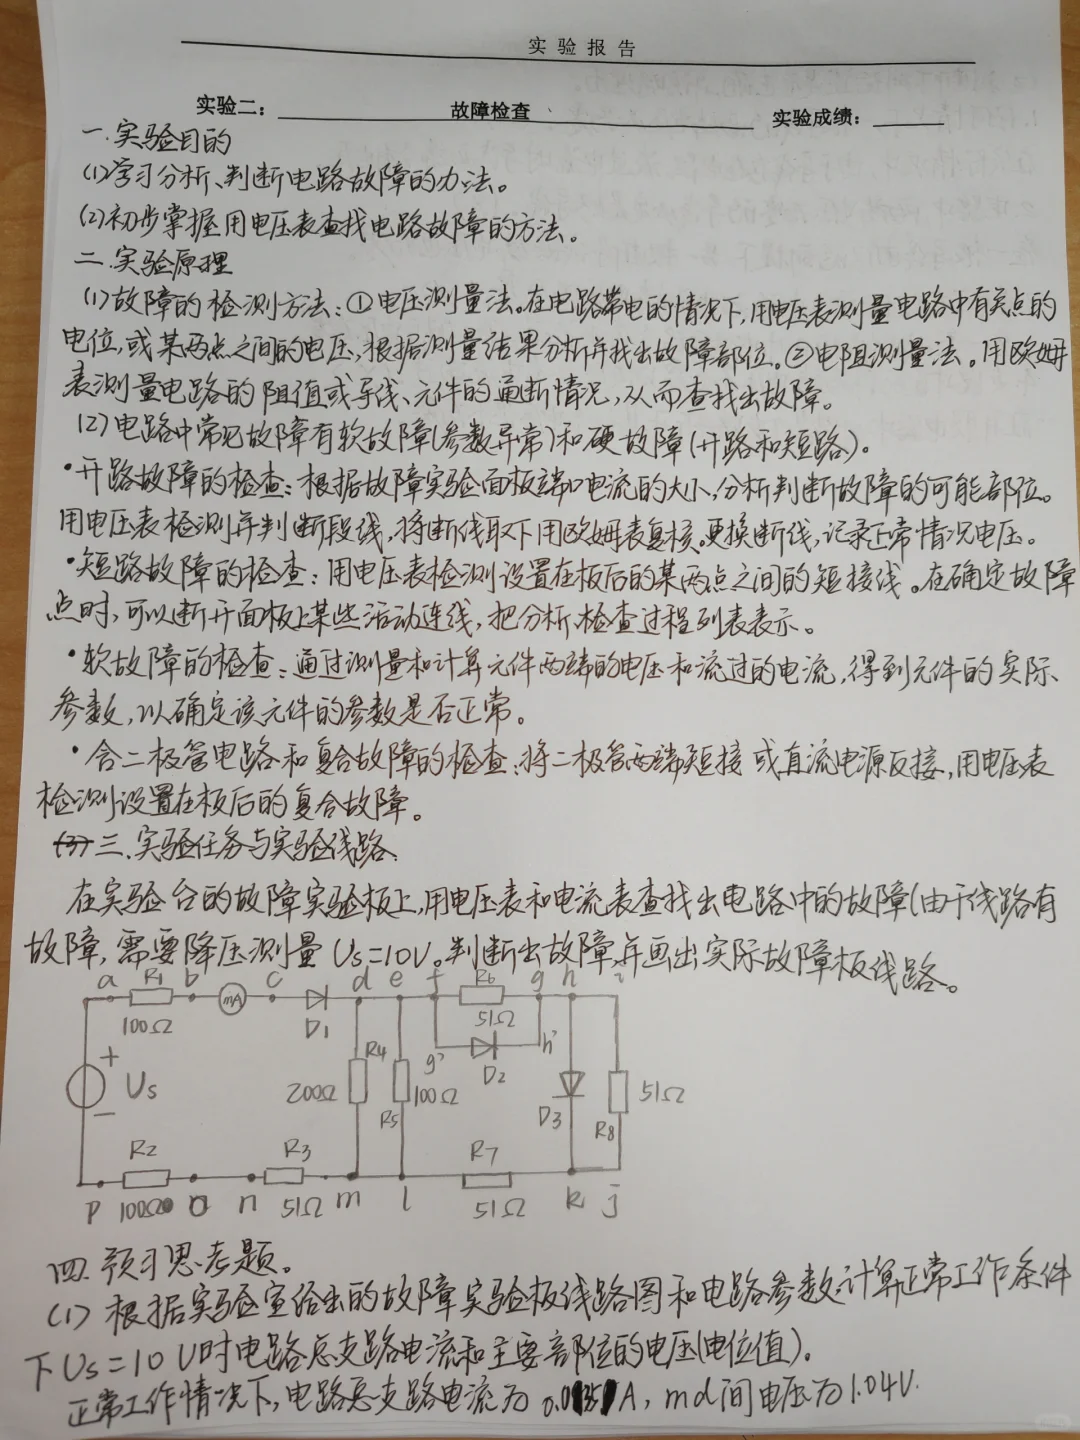 实验报告
实验二： 故障检查 实验成绩：
一.实验目的
(1)学习分析、判断电路故障的办法。
(2)初步掌握用电压表查找电路故障的方法。
二.实验原理
(1)故障的检测方法：①电压测量法。在电路带电的情况下，用电压表测量电路中有关点的
电位，或某两点之间的电压，根据测量结果分析并找出故障部位。②电阻测量法。用欧姆
表测量电路的阻值或导线、元件的通断情况，从而查找出故障。
(2)电路中常见故障有软故障(参数异常)和硬故障(开路和短路)。
·开路故障的检查：根据故障实验面板端口电流的大小，分析判断故障的可能部位。
用电压表检测并判断段线，将断线取下用欧姆表复核。更换断线，记录正常情况电压。
·短路故障的检查：用电压表检测设置在板后的某两点之间的短接线。在确定故障
点时，可以断开面板上某些活动连线，把分析、检查过程列表表示。
·软故障的检查：通过测量和计算元件两端的电压和流过的电流，得到元件的实际
参数，以确定该元件的参数是否正常。
·含二极管电路和复合故障的检查：将二极管两端短接或直流电源反接，用电压表
检测设置在板后的复合故障。
(3)三.实验任务与实验线路
在实验台的故障实验板上，用电压表和电流表查找出电路中的故障(由于线路有
故障，需要降压测量Us=10V。判断出故障，并画出实际故障板线路。
a R1 b c d e f R6 g h i
mA
100Ω D1 51Ω
g' D2 h'
+ Us −
R4 200Ω R5 100Ω D3 R8 51Ω
R2 R3 R7
p 100Ω o n 51Ω m l 51Ω k j
四.预习思考题。
(1)根据实验室给出的故障实验板线路图和电路参数，计算正常工作条件
下Us=10V时电路总支路电流和主要部位的电压(电位值)。
正常工作情况下，电路总支路电流为 A，md间电压为1.04V.